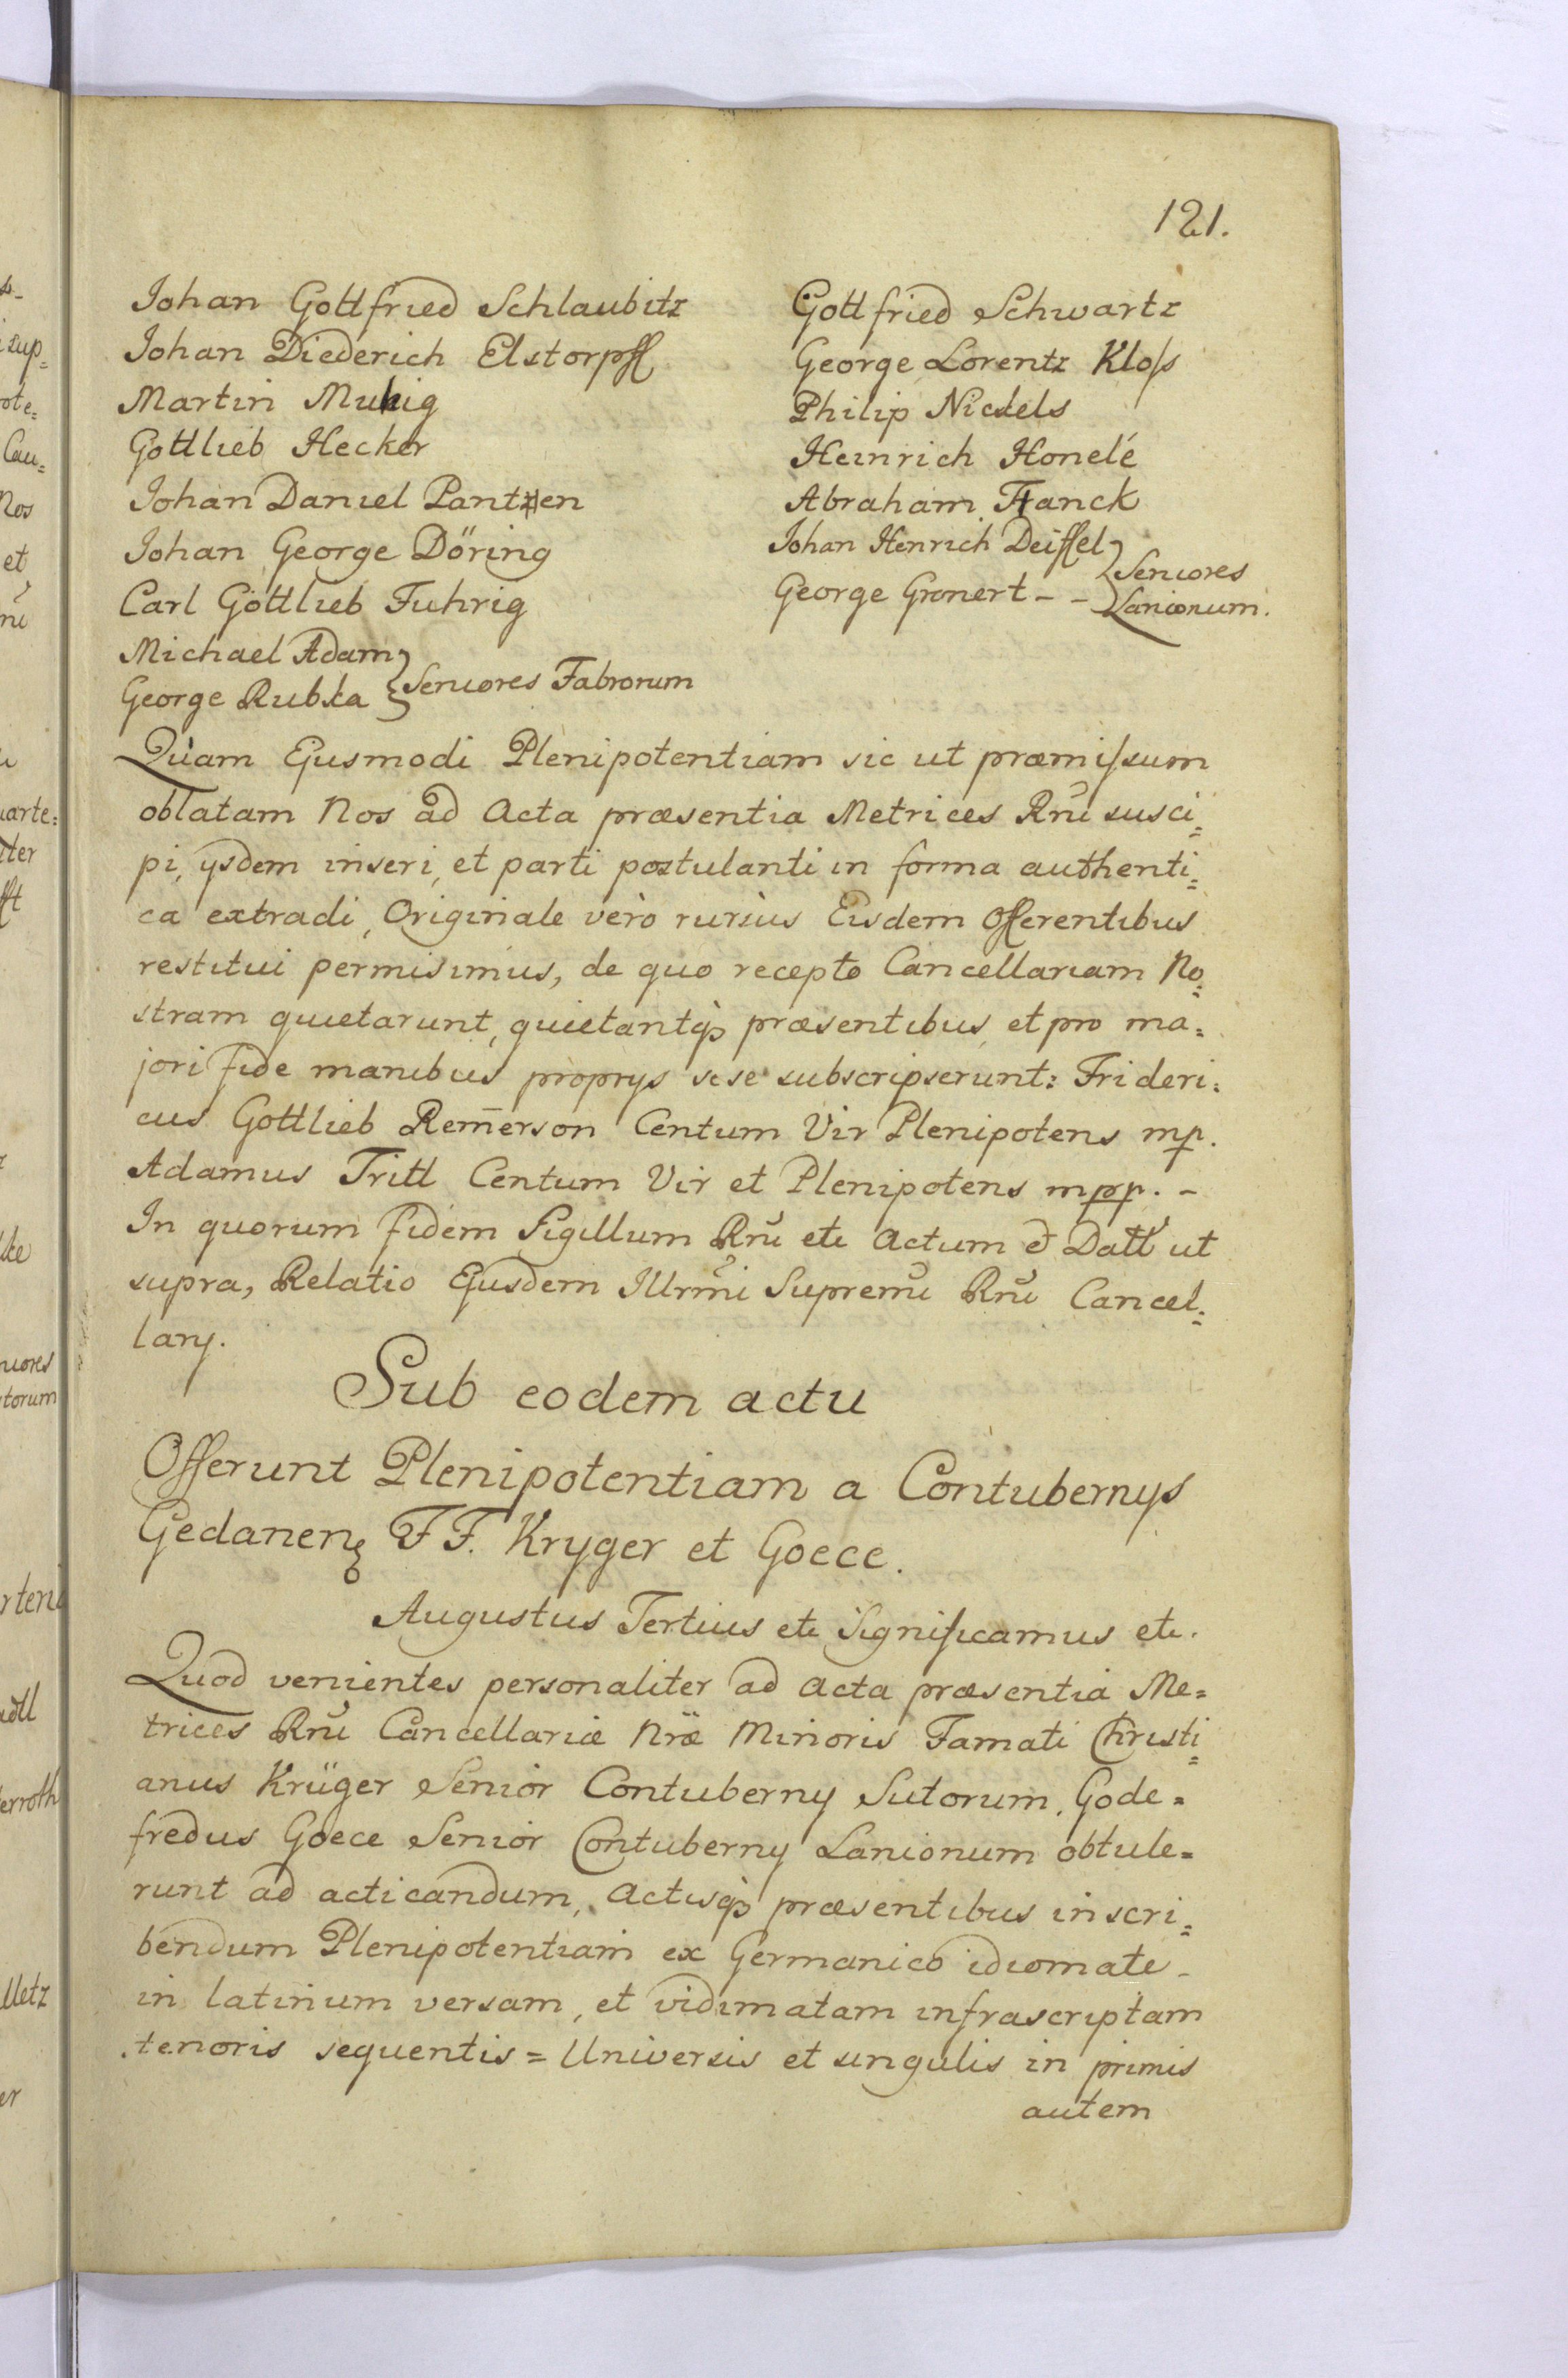 121.
Johan Gottfried Schlaubitz
Johan Diederich Elstorpff
Martin Muhig
Gottlieb Hecker
Johan Daniel Pantzen
Johan George Döring
Carl Gottlieb Fuhrig
Michael Adam
George Rubka } Seniores Fabrorum
Gottfried Schwartz
George Lorentz Kloſs
Philip Nickels
Heinrich Honelé
Abraham Franck
Johan Henrich Deiſſel
George Gronert - - } Seniores Lanionum.
Quam Ejusmodi Plenipotentiam sic ut præmiſsum
oblatam Nos ad Acta præsentia Metrices Rñi susci=
pi, ijsdem inseri, et parti postulanti in forma authenti=
ca extradi, Originale vero rursus Eisdem Offerentibus
restitui permisimus, de quo recepto Cancellariam No=
stram quietarunt, quietantq̃ præsentibus, et pro ma=
jori fide manibus proprijs sese subscripserunt: Frideri=
cus Gottlieb Rem̄erson Centum Vir Plenipotens mp.
Adamus Tritt Centum Vir et Plenipotens mpp. -
In quorum fidem Sigillum Rñi etc Actum & Datt ut
supra, Relatio Ejusdem Illrm̃i Supremi Rñi Cancel=
larij.
Sub eodem actu
Offerunt Plenipotentiam a Contubernijs
Gedanen. F F. Kryger et Goece.
Augustus Tertius etc Significamus etc.
Quod venientes personaliter ad Acta præsentia Me=
trices Rñi Cancellariæ Nræ Minoris Famati Christi=
anus Krüger Senior Contubernij Sutorum, Gode=
fredus Goece Senior Contubernij Lanionum obtule=
runt ad acticandum, Actisq̃ præsentibus inscri=
bendum Plenipotentiam ex Germanico idiomate
in latinum versam, et vidimatam infrascriptam
tenoris sequentis = Universis et singulis in primis
autem